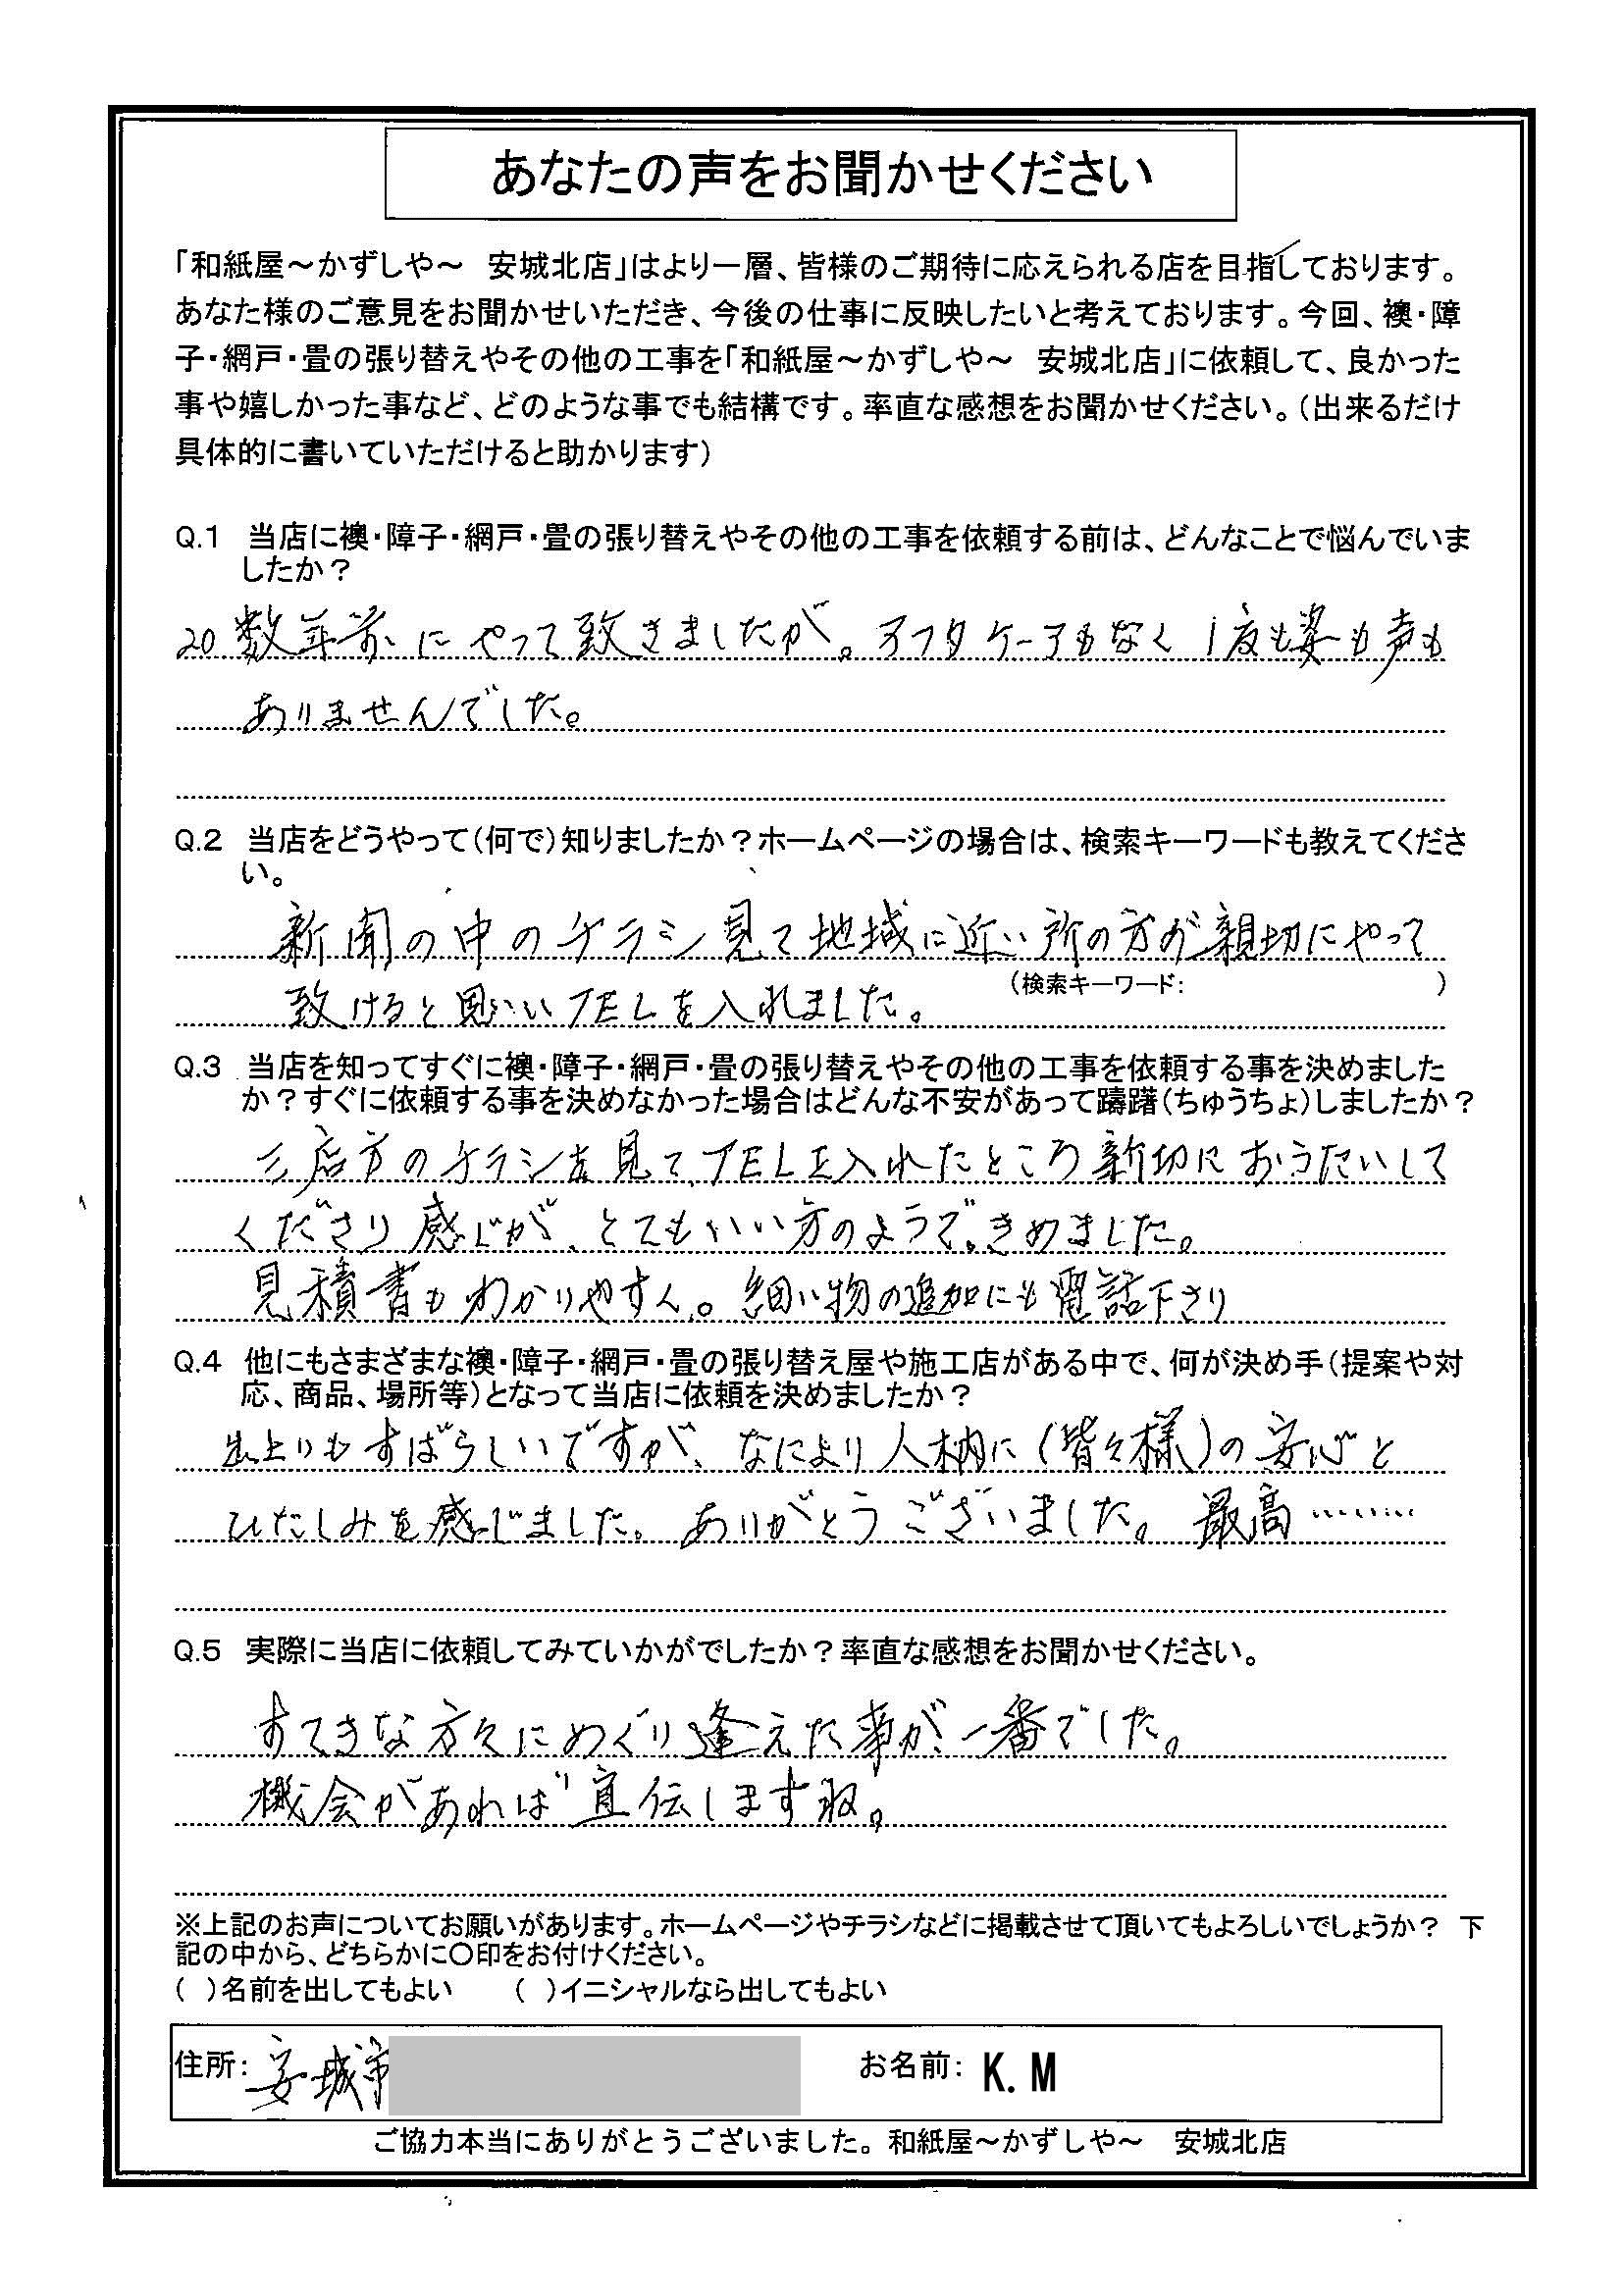 あなたの声をお聞かせください
「和紙屋～かずしや～　安城北店」はより一層、皆様のご期待に応えられる店を目指しております。
あなた様のご意見をお聞かせいただき、今後の仕事に反映したいと考えております。今回、襖・障
子・網戸・畳の張り替えやその他の工事を「和紙屋～かずしや～　安城北店」に依頼して、良かった
事や嬉しかった事など、どのような事でも結構です。率直な感想をお聞かせください。（出来るだけ
具体的に書いていただけると助かります）
Q.1　当店に襖・障子・網戸・畳の張り替えやその他の工事を依頼する前は、どんなことで悩んでいま
したか？
20数年前にやって致きましたが。アフタケーアもなく1度も姿も声も
ありませんでした。
Q.2　当店をどうやって（何で）知りましたか？ホームページの場合は、検索キーワードも教えてくださ
い。
新聞の中のチラシ見て地域に近い所の方が親切にやって
（検索キーワード：　　　　　　　　　　）
致けると思いTELを入れました。
Q.3　当店を知ってすぐに襖・障子・網戸・畳の張り替えやその他の工事を依頼する事を決めました
か？すぐに依頼する事を決めなかった場合はどんな不安があって躊躇（ちゅうちょ）しましたか？
店方のチラシを見て、TELを入れたところ新切におうたいして
くださり感じが、とてもいい方のようで。きめました。
見積書もわかりやすく。細い物の追加にも電話下さり
Q.4　他にもさまざまな襖・障子・網戸・畳の張り替え屋や施工店がある中で、何が決め手（提案や対
応、商品、場所等）となって当店に依頼を決めましたか？
出上りもすばらしいですが、なにより人柄に（皆々様）の安心と
ひたしみを感じました。ありがとうございました。最高………
Q.5　実際に当店に依頼してみていかがでしたか？率直な感想をお聞かせください。
すてきな方々にめぐり逢えた事が、一番でした。
機会があれば宣伝しますね。
※上記のお声についてお願いがあります。ホームページやチラシなどに掲載させて頂いてもよろしいでしょうか？　下
記の中から、どちらかに〇印をお付けください。
（　）名前を出してもよい　　（　）イニシャルなら出してもよい
住所：安城市　お名前：K.M
ご協力本当にありがとうございました。和紙屋～かずしや～　安城北店